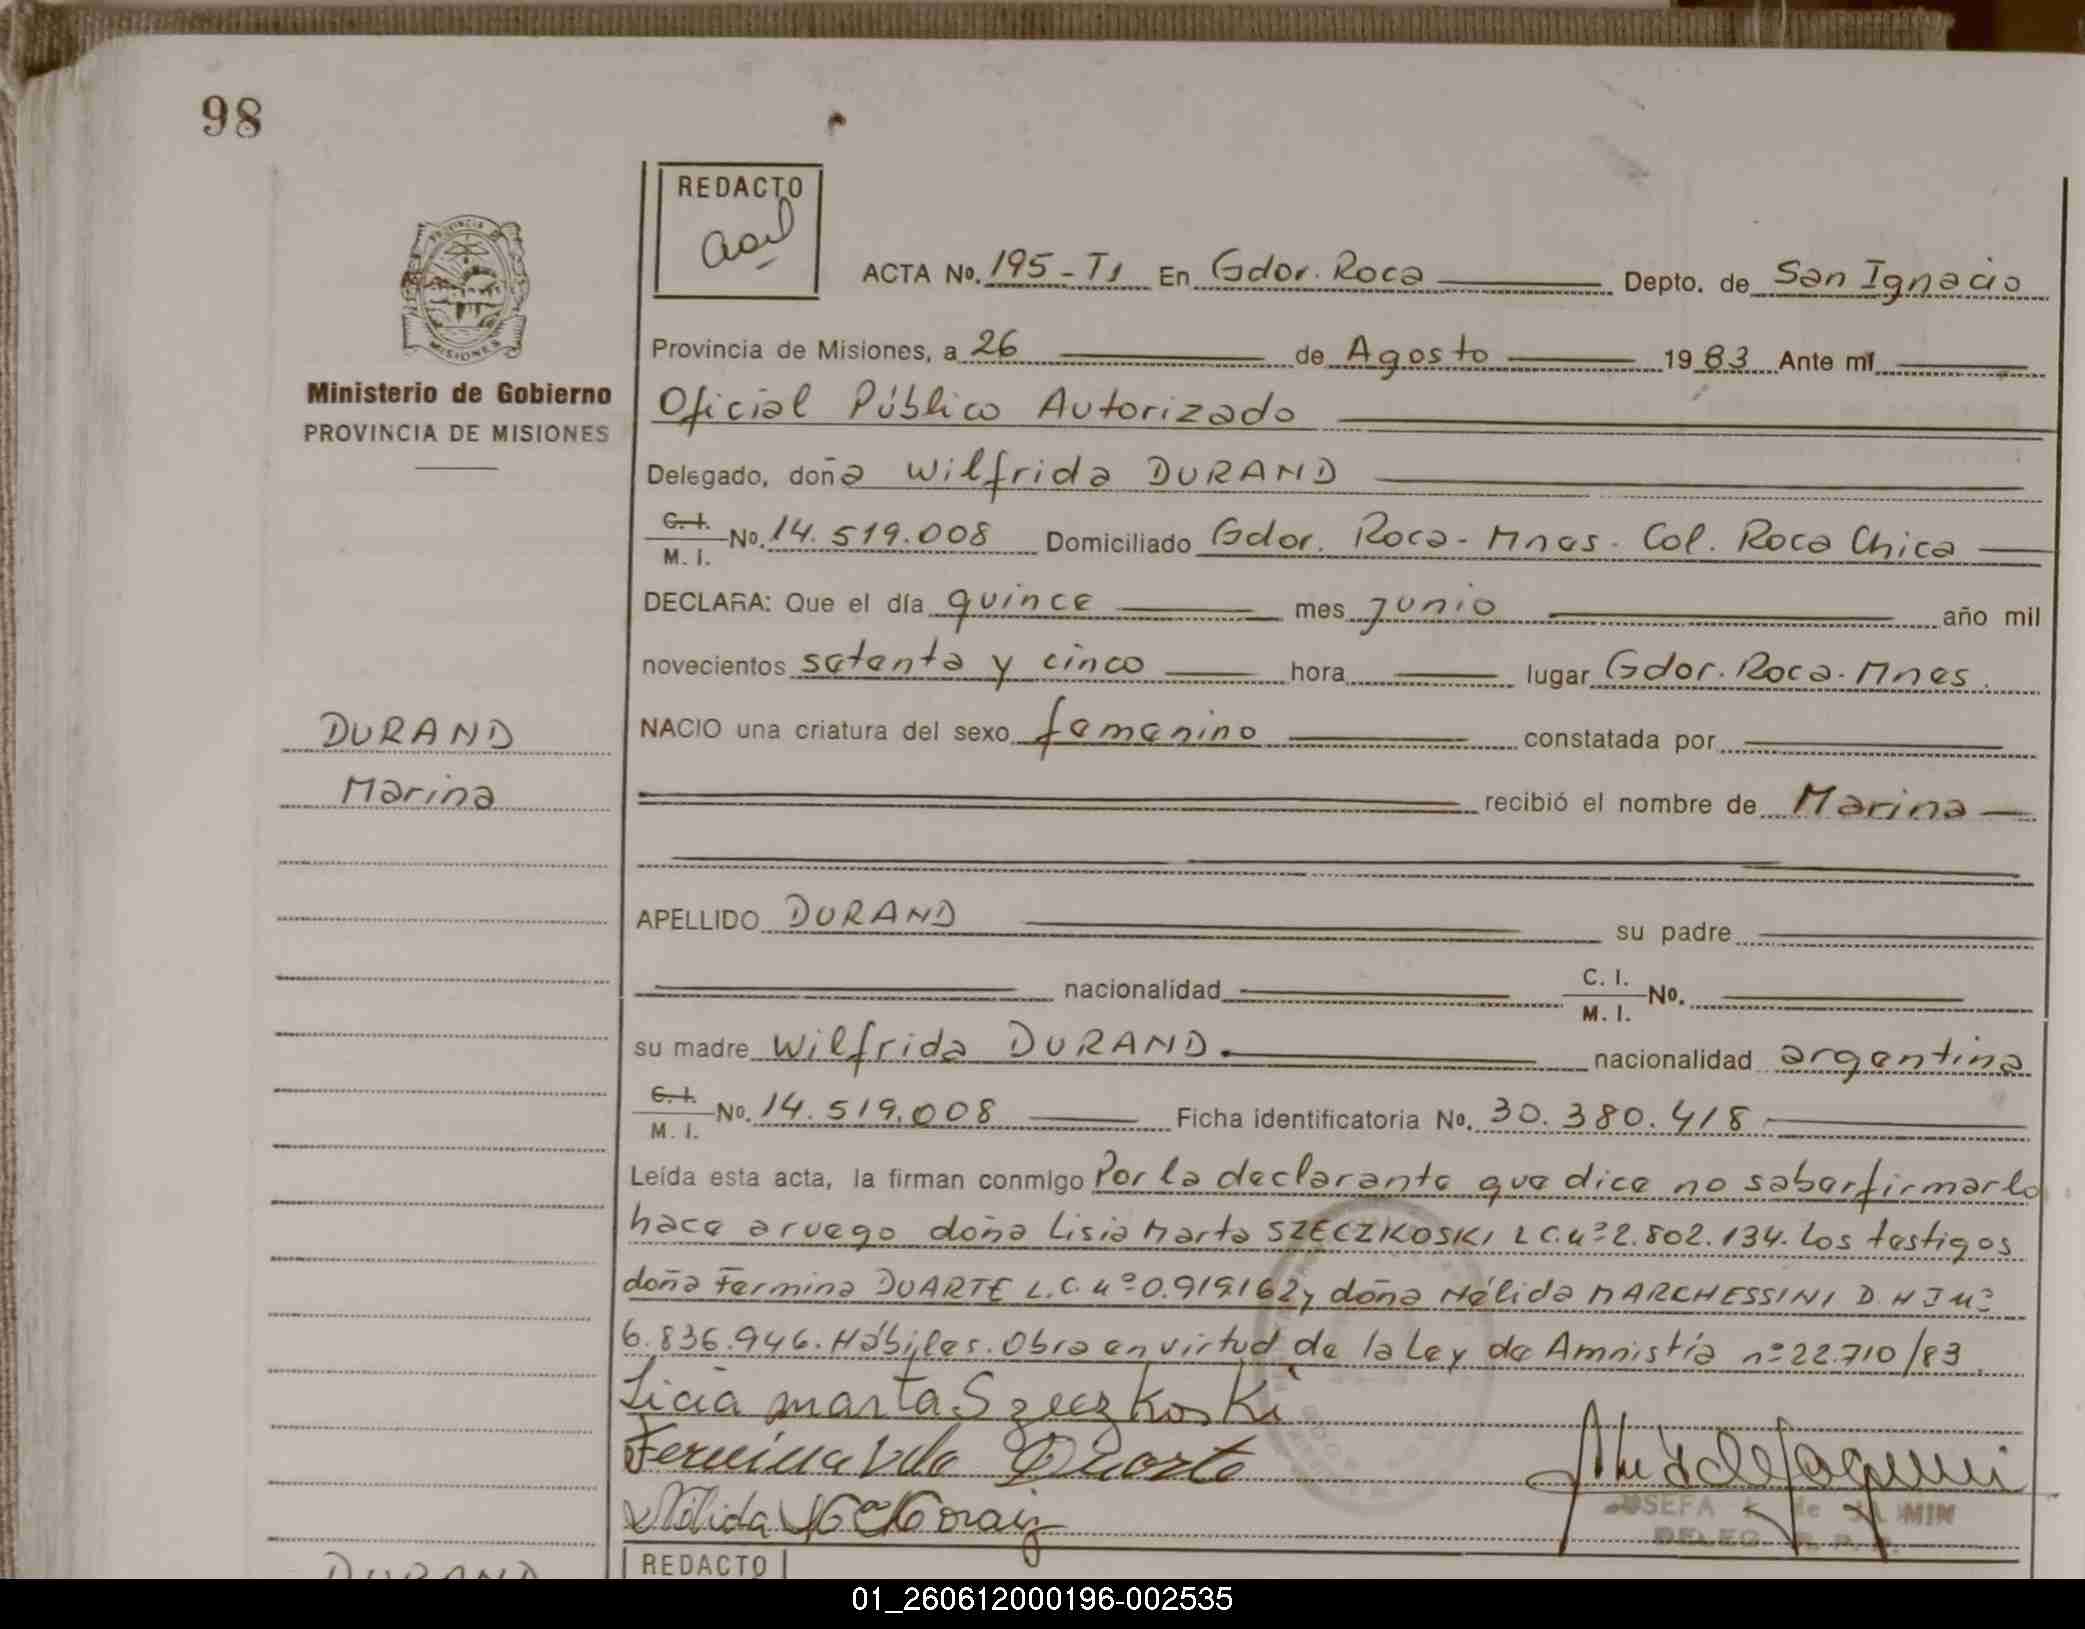 98
REDACTO
ACTA No. 195-T1 En Gdor. Roca Depto. de San Ignacio
PROVINCIA DE
MISIONES
Provincia de Misiones, a 26 de Agosto 1983 Ante mí
Ministerio de Gobierno
PROVINCIA DE MISIONES
Oficial Público Autorizado
Delegado, doña Wilfrida DURAND
C.I. M.I. No. 14.519.008 Domiciliado Gdor. Roca - Mnes - Col. Roca Chica
DECLARA: Que el día quince mes junio año mil
novecientos setenta y cinco hora lugar Gdor. Roca - Mnes.
DURAND
NACIO una criatura del sexo femenino constatada por
Marina
recibió el nombre de Marina
APELLIDO DURAND su padre
nacionalidad C. I. M. I. No.
su madre Wilfrida DURAND. nacionalidad argentina
C.I. M.I. No. 14.519.008 Ficha identificatoria No. 30.380.418
Leída esta acta, la firman conmigo Por la declarante que dice no saber firmar lo
hace a ruego doña Lisia Marta SZECZKOSKI L C. nº 2.802.134. Los testigos
doña Fermina DUARTE L.C. nº 0.919.162 y doña Nélida MARCHESSINI D.N I nº
6.836.946. Hábiles. Obra en virtud de la Ley de Amnistía nº 22.710/83
Licia marta Szeczkoski
Fermina Vda Duarte
Nélida
JOSEFA K de
DELEG. R. P.
REDACTO
DURAND
01_260612000196-002535